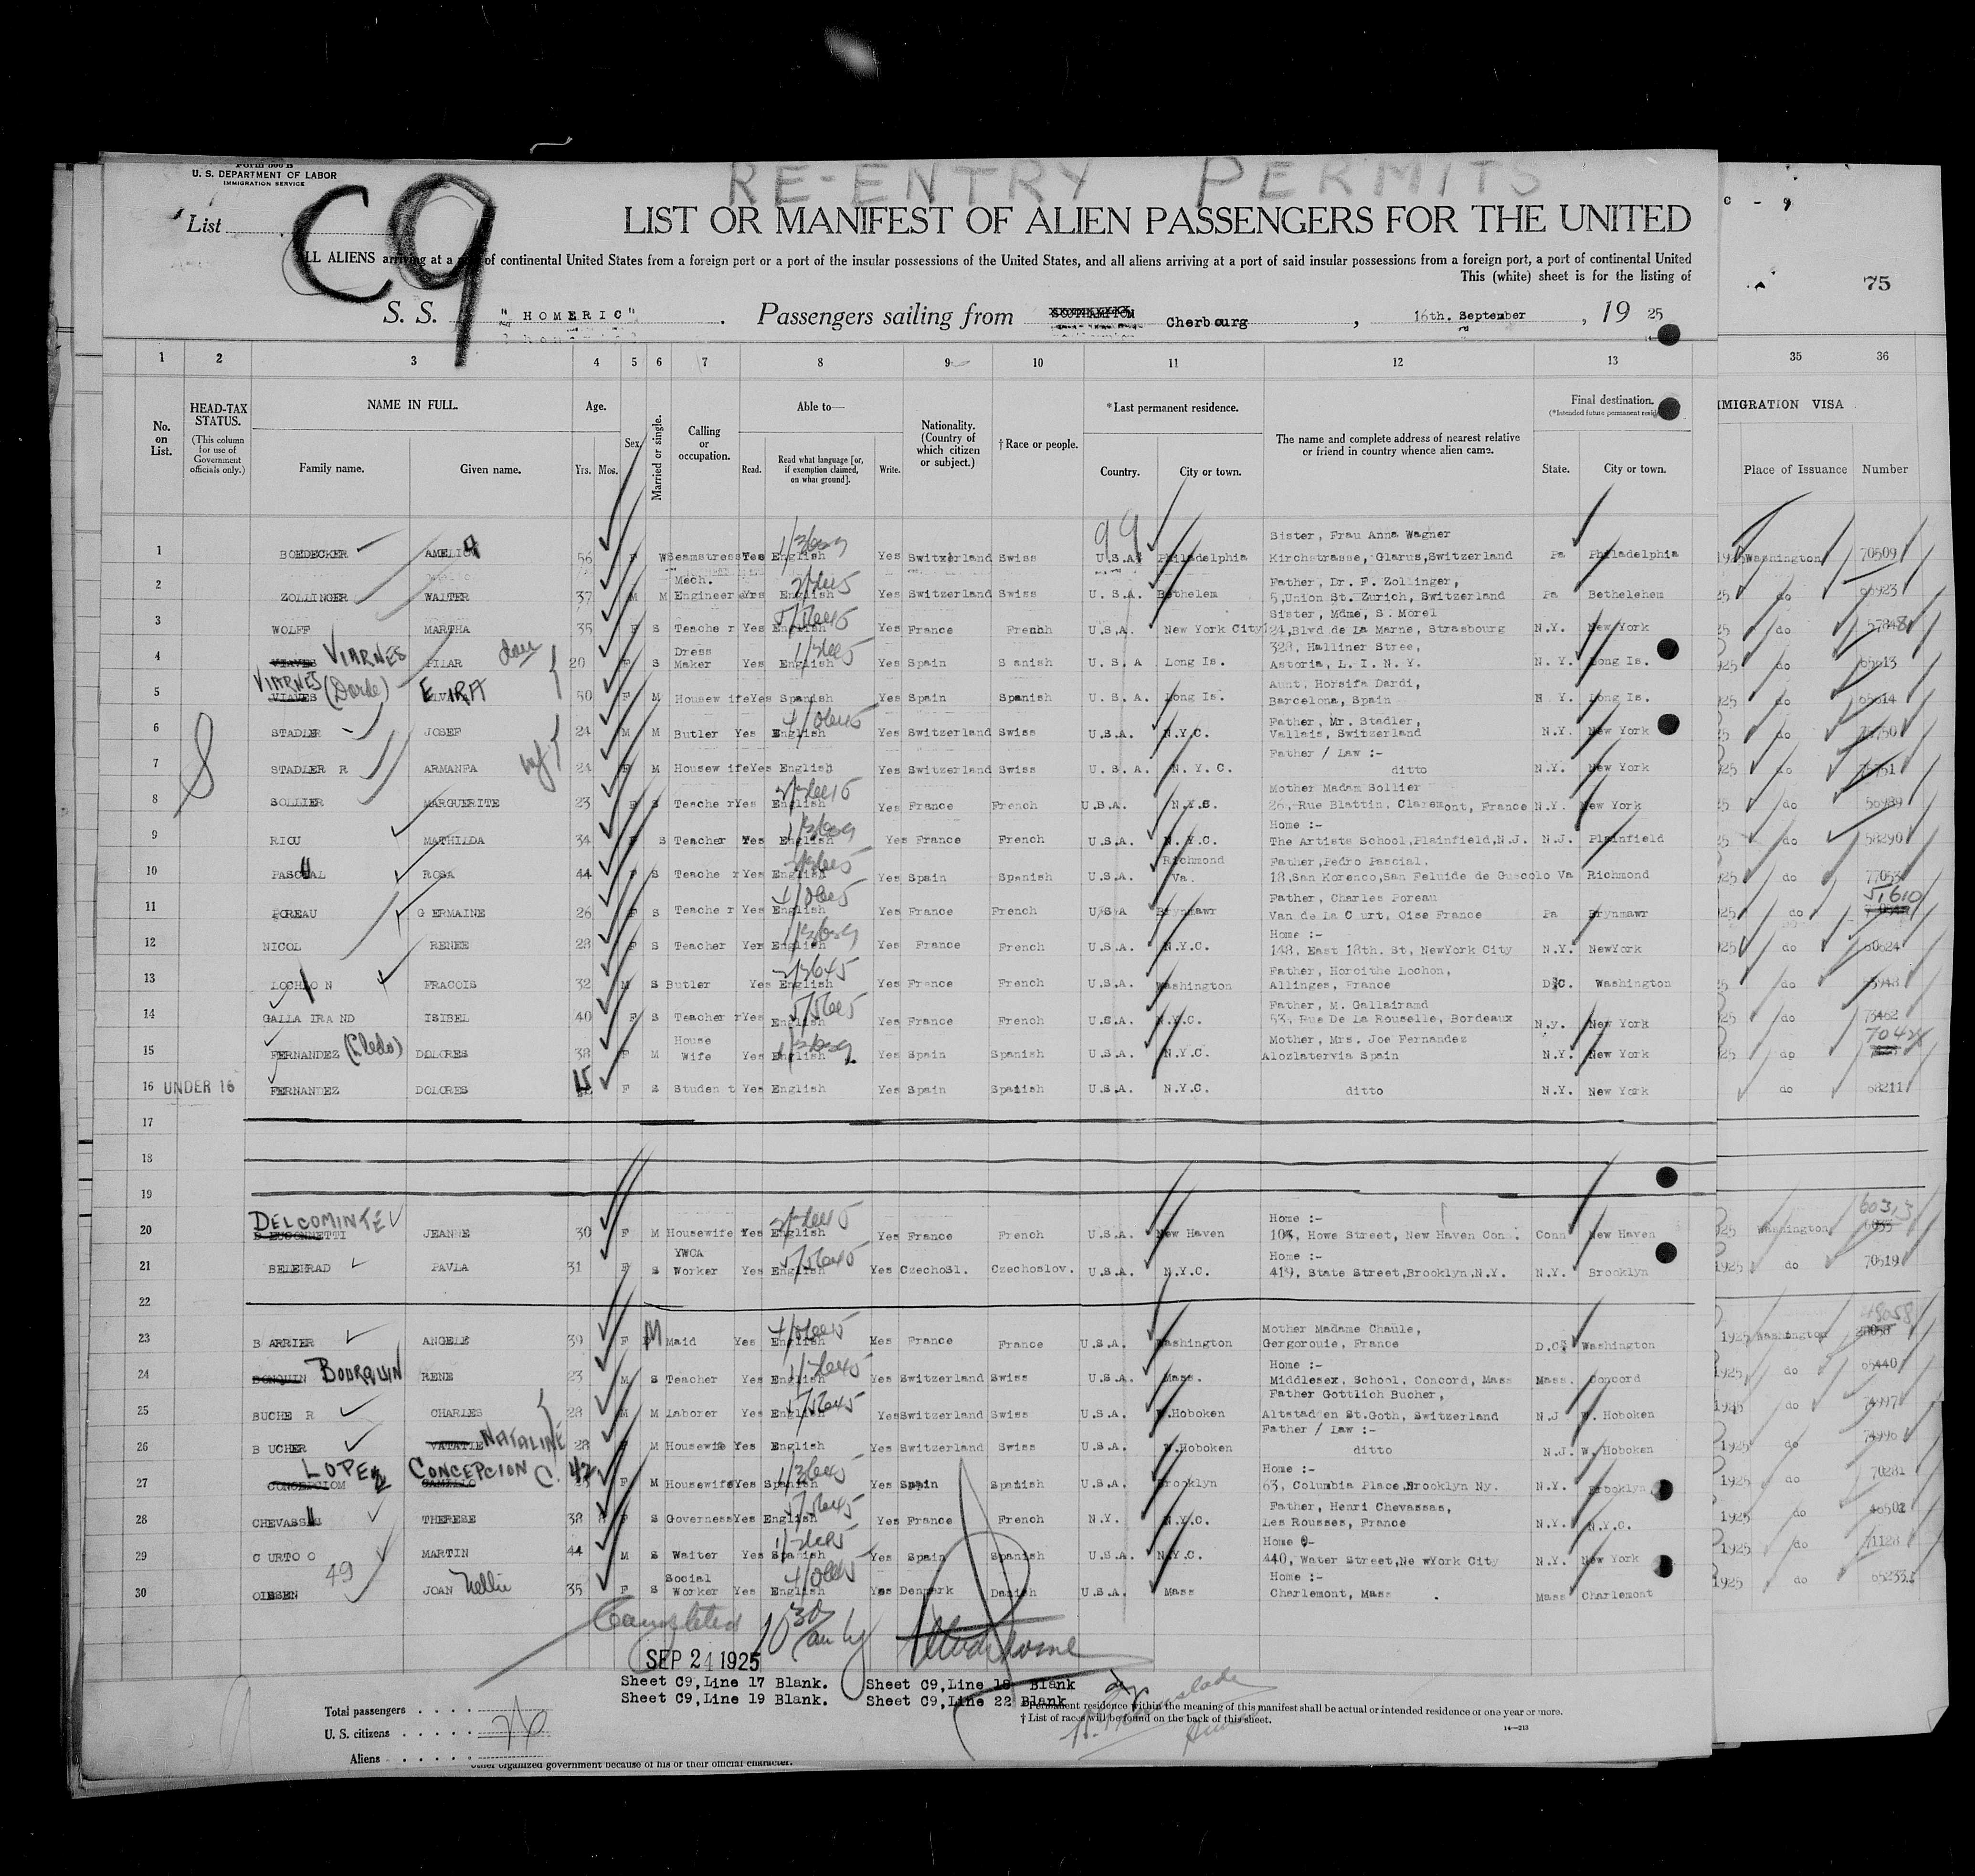 RE-ENTRY PERMITS
Form 500 B
U. S. DEPARTMENT OF LABOR
IMMIGRATION SERVICE
C9
List
LIST OR MANIFEST OF ALIEN PASSENGERS FOR THE UNITED
C - 9
ALL ALIENS arriving at a port of continental United States from a foreign port or a port of the insular possessions of the United States, and all aliens arriving at a port of said insular possessions from a foreign port, a port of continental United
This (white) sheet is for the listing of
75
S. S. "HOMERIC" . Passengers sailing from SOUTHAMPTON Cherbourg , 16th. September , 19 25
1 2 3 4 5 6 7 8 9 10 11 12 13 35 36
No. on List.
HEAD-TAX STATUS.
(This column for use of Government officials only.)
NAME IN FULL.
Family name. Given name.
Age.
Yrs. Mos.
Sex
Married or single.
Calling or occupation.
Able to—
Read. Read what language [or, if exemption claimed, on what ground]. Write.
Nationality. (Country of which citizen or subject.)
†Race or people.
*Last permanent residence.
Country. City or town.
The name and complete address of nearest relative or friend in country whence alien came.
Final destination.
(*Intended future permanent resid
State. City or town.
IMIGRATION VISA
Place of Issuance Number
99
1 BOEDECKER AMELIA 56 F W Seamstress Yes English Yes Switzerland Swiss U.S.A. Philadelphia Sister, Frau Anna Wagner Kirchstrasse, Glarus,Switzerland Pa Philadelphia Washington 70509
2 ZOLLINGER WALTER 37 M M Mech. Engineer Yes English Yes Switzerland Swiss U.S.A. Bethelem Father, Dr. F. Zollinger, 5,Union St. Zurich, Switzerland Pa Bethelehem do
3 WOLFF MARTHA 35 F S Teacher Yes English Yes France French U.S.A. New York City Sister, Mdme, S. Morel 24,Blvd de La Marne, Strasbourg N.Y. New York do 57848
4 VIARNES PILAR dau 20 F S Dress Maker Yes English Yes Spain S anish U. S. A Long Is. 328, Halliner Stree, Astoria, L. I. N. Y. N. Y. Long Is. do 65613
5 VIARNES (Dorde) ELVIRA 50 F M Housewife Yes Spanish Yes Spain Spanish U. S. A. Long Is. Aunt, Horsifa Dardi, Barcelona, Spain N Y. Long Is. do 65614
6 STADLER JOSEF 24 M M Butler Yes English Yes Switzerland Swiss U.S.A. N.Y.C. Father, Mr. Stadler, Vallais, Switzerland N.Y. New York do
7 STADLER R ARMANFA wf 24 F M Housewife Yes English Yes Switzerland Swiss U. S. A. N. Y. C. Father / Law :- ditto N.Y. New York do
8 SOLLIER MARGUERITE 23 F S Teacher Yes English Yes France French U.S.A. N.Y.S. Mother Madam Sollier 26, Rue Blattin, Claremont, France N.Y. New York do 56989
9 RIOU MATHILDA 34 F S Teacher Yes English Yes France French U.S.A. N.Y.C. Home :- The Artists School,Plainfield,N.J. N.J. Plainfield do 58290
10 PASCUAL ROSA 44 F S Teacher Yes English Yes Spain Spanish U.S.A. Richmond Va. Father,Pedro Pascial. 18,San Korenco,San Feluide de Guscolo Va Richmond do 77053
11 POREAU GERMAINE 26 F S Teacher Yes English Yes France French U.S.A Brynmawr Father, Charles Poreau Van de La Court, Oise France Pa Brynmawr do 5,610
12 NICOL RENEE 28 F S Teacher Yes English Yes France French U.S.A. N.Y.C. Home :- 148, East 18th. St, NewYork City N.Y. NewYork do 60624
13 LOCHON FRACOIS 32 M S Butler Yes English Yes France French U.S.A. Washington Father, Horcithe Lochon, Allinges, France D.C. Washington do
14 GALLA IRA ND ISIBEL 40 F S Teacher Yes English Yes France French U.S.A. N.Y.C. Father, M. Gallairand 53, Rue De La Rouselle, Bordeaux N.y. New York do 73462
15 FERNANDEZ (Cledo) DOLORES 38 F M House Wife Yes English Yes Spain Spanish U.S.A. N.Y.C. Mother, Mrs. Joe Fernandez Alozlatervia Spain N.Y. New York do
16 UNDER 16 FERNANDEZ DOLORES 15 F S Student Yes English Yes Spain Spanish U.S.A. N.Y.C. ditto N.Y. New York do 68211
17
18
19
20 DELCOMINTÉ JEANNE 30 F M Housewife Yes English Yes France French U.S.A. New Haven Home :- 108, Howe Street, New Haven Con. Conn New Haven Washington 60313
21 BELEHRAD PAVLA 31 F S YWCA Worker Yes English Yes CzechoSl. Czechoslov. U.S.A. N.Y.C. Home :- 419, State Street,Brooklyn,N.Y. N.Y. Brooklyn 1925 do 70519
22
23 BARRIER ANGELE 39 F M Maid Yes English Yes France France U.S.A. Washington Mother Madame Chaule, Gergorouie, France D.C. Washington 1925 Washington 48058
24 BOURQUIN RENE 23 M S Teacher Yes English Yes Switzerland Swiss U.S.A. Mass. Home :- Middlesex, School, Concord, Mass Mass. Concord 1925 do 65440
25 BUCHE R CHARLES 28 M M Laborer Yes English Yes Switzerland Swiss U.S.A. W.Hoboken Father Gottlich Bucher, Altstad en St.Goth, Switzerland N.J W. Hoboken 1925 do 74997
26 B UCHER NATALINE 28 F M Housewife Yes English Yes Switzerland Swiss U.S.A. W.Hoboken Father / Law :- ditto N.J. W. Hoboken 1925 do 74996
27 LOPEZ CONCEPCION C. 42 F M Housewife Yes Spanish Yes Spain Spanish U.S.A. Brooklyn Home :- 63, Columbia Place,Brooklyn Ny. N.Y. Brooklyn 1925 do 70281
28 CHEVASSU THERESE 38 F S Governess Yes English Yes France French N.Y. N.Y.C. Father, Henri Chevassas, Les Rousses, France N.Y. N.Y.C. 1925 do 46502
29 C URTO O MARTIN 44 M S Waiter Yes Spanish Yes Spain Spanish U.S.A. N.Y.C. Home 440, Water Street,Ne wYork City N.Y. New York 1925 do 71128
30 OLESEN 49 JOAN Nellie 35 F S Social Worker Yes English Yes Denmark Danish U.S.A. Mass Home :- Charlemont, Mass Mass Charlemont 1925 do 65233
Completed 10 30 am by
SEP 24 1925
Sheet C9,Line 17 Blank. Sheet C9,Line 18 Blank
Sheet C9,Line 19 Blank. Sheet C9,Line 22 Blank
*Permanent residence within the meaning of this manifest shall be actual or intended residence of one year or more.
† List of races will be found on the back of this sheet.
14—213
Total passengers
U. S. citizens
26
Aliens
other organized government because of his or their official character.